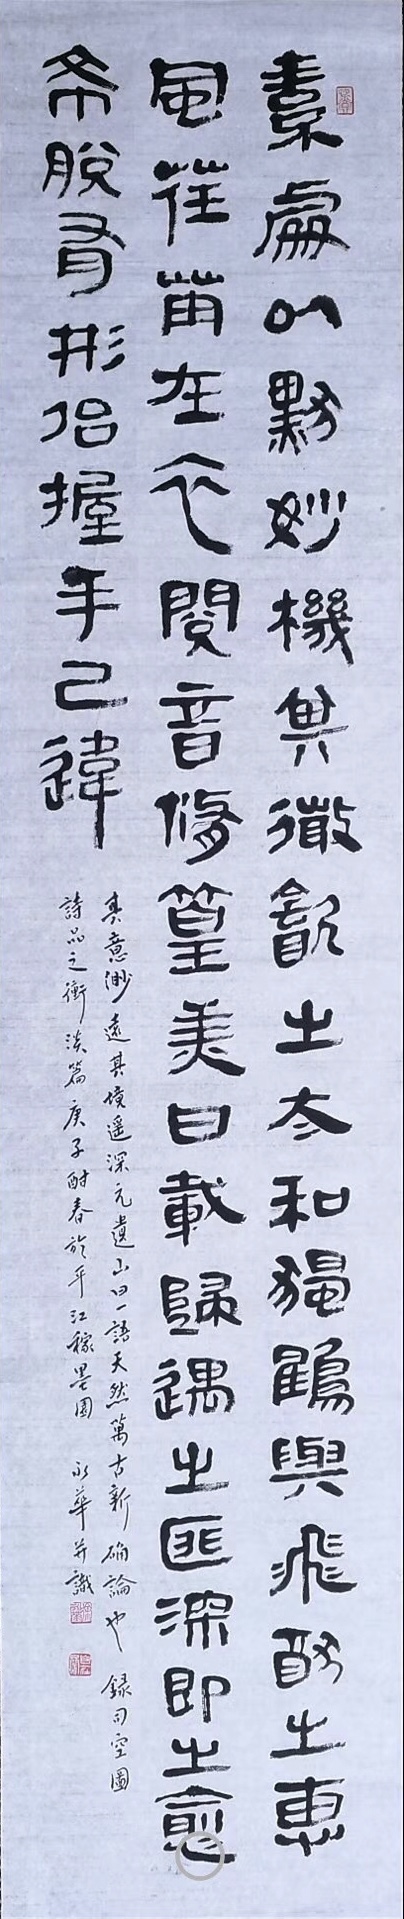 素處以默妙機其微飲之太和獨鶴與飛猶之惠
風荏苒在衣閱音修篁美曰載歸遇之匪深即之愈
希脫有形佀握手已違
其意渺遠其境遥深元遺山曰一語天然萬古新确論也 録司空圖
詩品之衝淡篇庚子酣春於平江稼墨園 永華并識